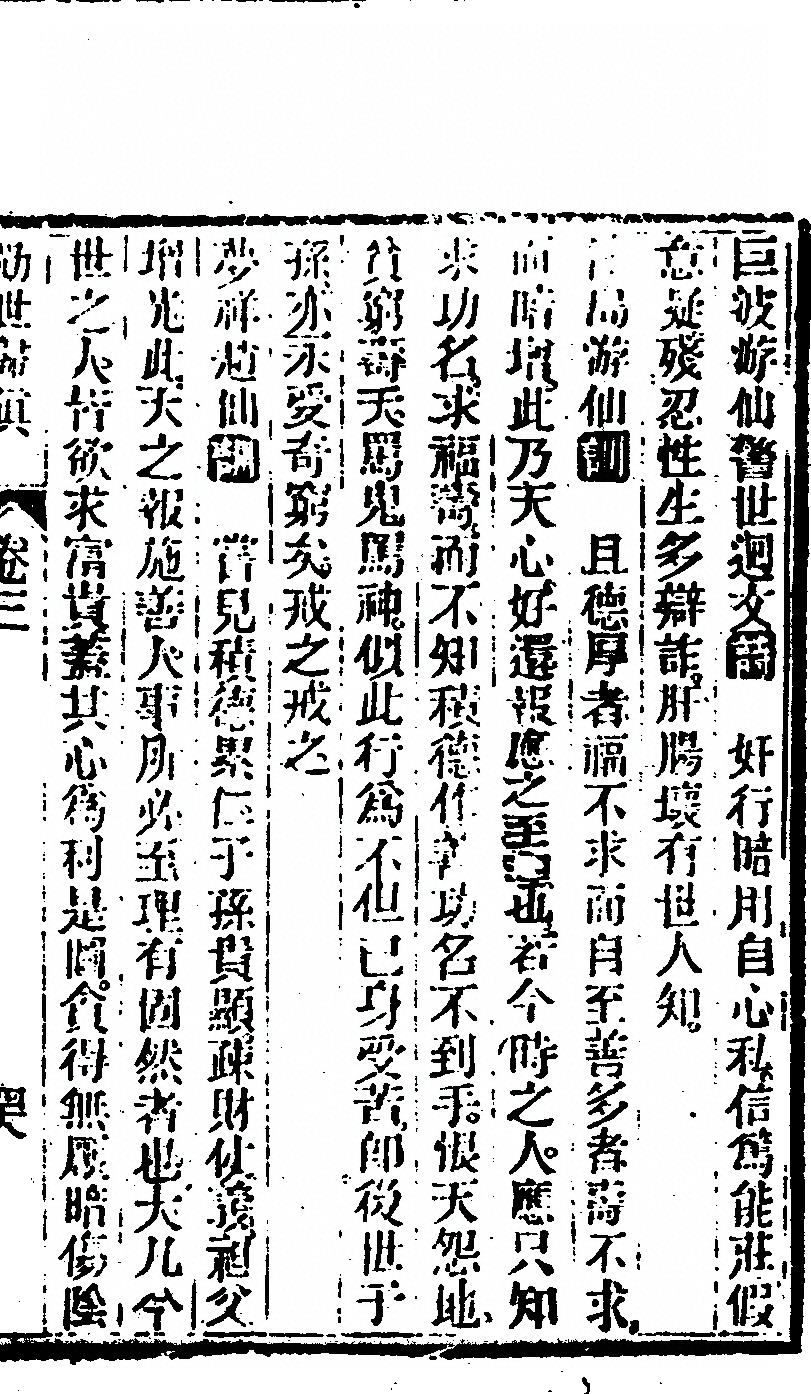 巨波游仙警世迴文 奸行暗用自心私信篤能莊假
意疑殘忍性生多辯詐肝腸壞有世人知
局游仙訓 且德厚者福不求而自至善多者壽不求
而暗增此乃天心好還報應之至也若今時之人應只知
求功名求福壽而不知積德作善功名不到手恨天怨地
貧窮壽夭罵鬼罵神似此行為不但己身受苦即後世子
孫亦永受奇窮矣戒之戒之
夢祥仙訓 嘗見積德累仁子孫貴顯疎財仗義祖父
增光此天之報施善人事所必至理有固然者也大凡今
世之人皆欲求富貴蓋其心為利是圖貪得無厭暗傷陰
世歸真 卷三